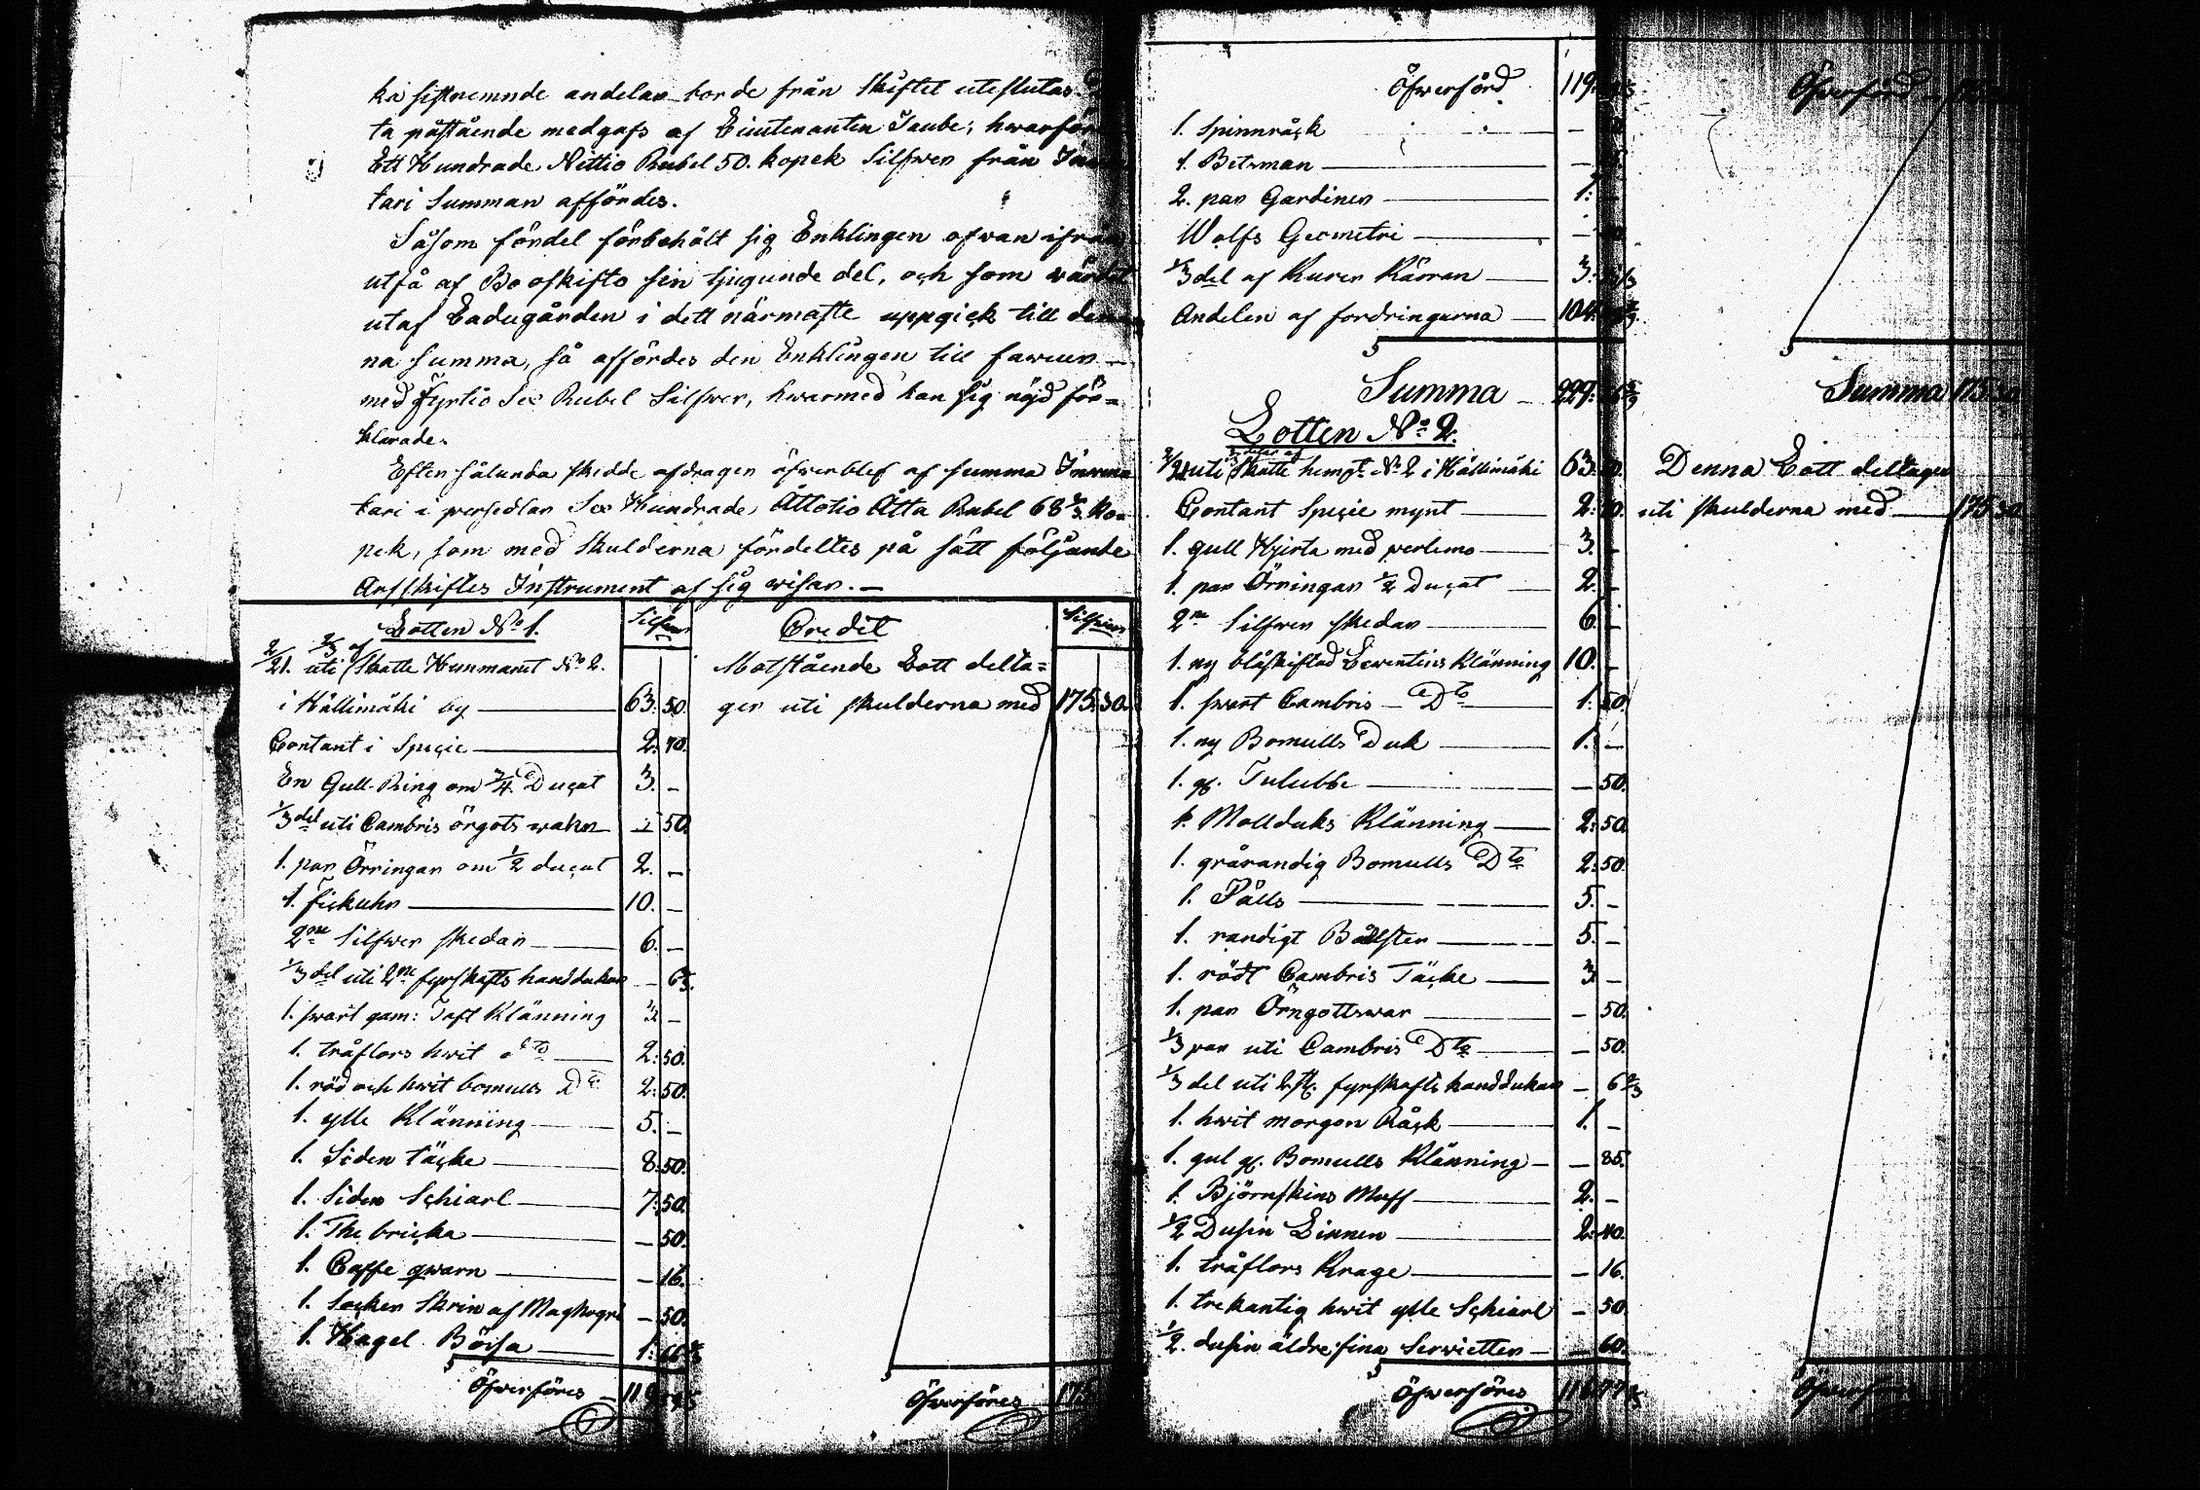 ka sistnemnde andelar borde från skiftet uteslutas
ta påstående medgafs af Lieutenanten Taube; hwarför
Ett Hundrade Nittio Rubel 50. kopek Silfwer från
tari Summan affördes.
Såsom fördel förbehölt sig Enklingen ofwan ifrån
utfå af Bo oskifto sin tjugunde del, och som wärdet
utaf Ladugården i dett närmaste uppgick till den
na summa, så affördes den Enklingen till
med Fyrtio Sex Rubel Silfwer, hwarmed han sig nöjd för=
klarade.
Efter sålunda skedde afdragen öfwerblef af summa
tari i persedlar Sex Hundrade Åttotio Åtta Rubel 68 2/3 ko=
pek, som med Skulderna fördeltes på sätt följande
Arfskiftes Instrument af sig wisar.—
Lotten No 1. Silfwer
2/3 af
2/21. uti Skatte Hemmanet No 2.
i Hällimäki by 63. 50.
Contant i Specie 2. 40.
En Gull-Ring om 3/4 Ducat 3. —
1/3 del uti Cambris örgots warn — 50.
1. par Örringar om 1/2 ducat 2. —
1. fickuhr 10. —
2ne Silfwer skedar 6. —
1/3 del uti 2ne fyrskafts handdukar — 6 2/3.
1. swart gam: Taft Klänning 3. —
1. tråflors hwit dto 2. 50.
1. röd och hwit bomulls Dto 2. 50.
1. ylle Klänning 5. —
1. Siden täcke 8. 50.
1. Siden Schiarl 7. 50.
1. The bricka — 50.
1. Caffe qwarn — 16.
1. Socker Skrin af Maghogni — 50.
1. Hagel Börsa 1. 66 2/3
Öfwerföres — 119
Credit Silfwer
Motstående Lott delta=
ger uti skulderna med 175. 30.
Öfwerföres 175
Öfwerförd 119
1. Spinnråck —
1. Betsman —
2. par Gardiner 1. —
Wolfs Geometri —
1/3 del af Kurer Kärran 3.
Andelen af fordringarna — 104.
Summa — 227.
Lotten No 2.
2/21 uti Skatte hemt No 2 i Hällimäki 63. 50.
Contant Specie mynt 2. 40.
1. gull Hjerta med perlemo 3. —
1. par Örringar 1/2 Ducat 2. —
2ne Silfwer skedar 6. —
1. ny blåskiftad Lewentins Klänning 10. —
1. swart Cambris Dto 1. 50.
1. ny Bomulls Duk 1. —
1. gl. Tulubbe — 50.
1. Mollduks Klänning 2. 50.
1. grårandig Bomulls Dto 2. 50.
1. Fälls 5. —
1. randigt Bolster 5. —
1. rödt Cambris Täcke 3. —
1. par Örngottswar — 50.
1/3 par uti Cambris Dto — 50.
1/3 del uti 2. st. fyrskafts handdukar — 6 2/3
1. hwit morgon Råck 1. —
1. gul gl. Bomulls Klänning — 85.
1. Björnskins Muff 2. —
1/2 Dusin Linnen 2. 40.
1. tråflors Krage — 16.
1. trekantig hwit ylle Schiarl — 50.
1/2 dusin äldre fina Servietter — 60.
Öfwerföres 116 77
Öfwerförd
Summa 175. 30.
Denna Lott deltager
uti skulderna med 175. 30.